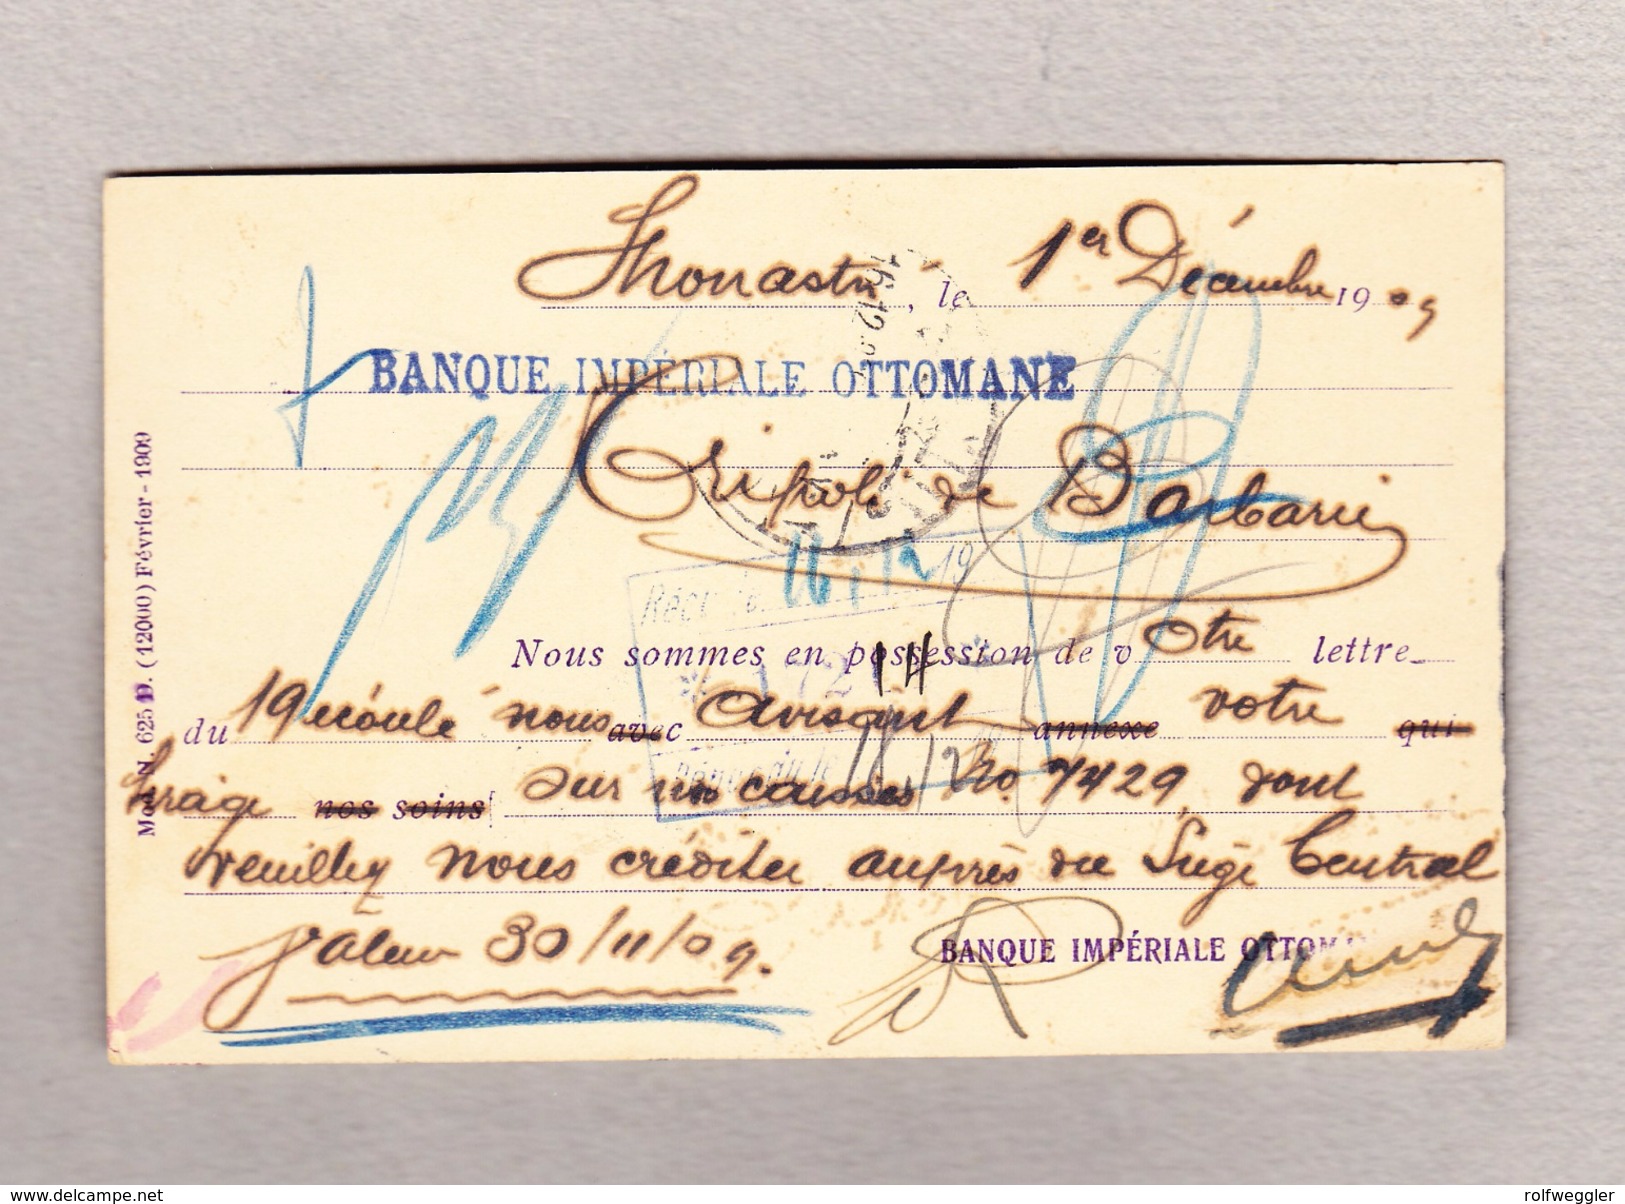 Monastir, le 1er Décembre 1909
BANQUE IMPÉRIALE OTTOMANE
Tripoli de Barbarie
Reçu le 16/12 19
Nous sommes en possession de votre lettre
du 19 écoulé nous avec avisant annexe votre qui
tirage nos soins sur nos caisses No. 7429 dont
veuillez nous créditer auprès du Siège Central
Valeur 30/11/09.
BANQUE IMPÉRIALE OTTOM
Mod. N. 625 D. (12000) Février - 1909
www.delcampe.net
rolfweggler